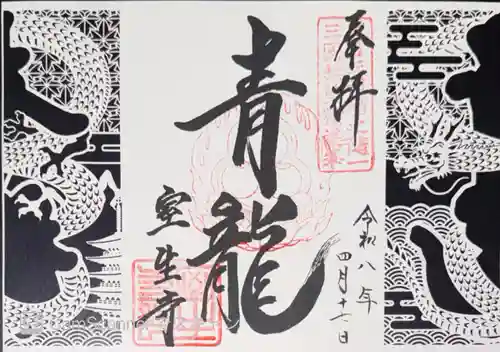 奉拝
青龍
令和八年
四月十七日
室生寺